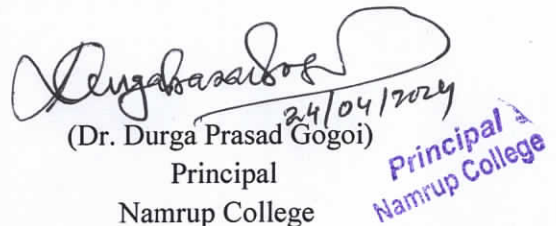 24/04/2024
(Dr. Durga Prasad Gogoi)
Principal
Namrup College
Principal
Namrup College